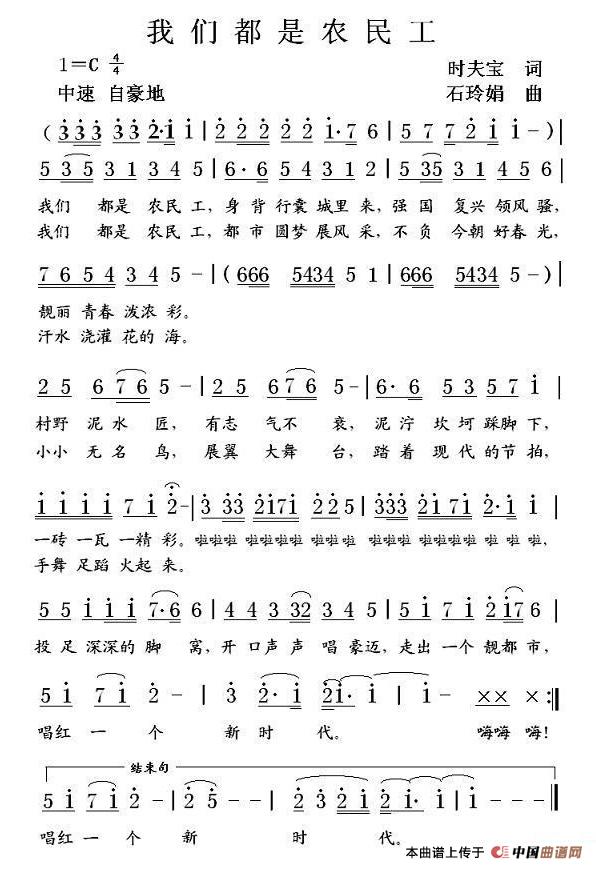 我们都是农民工
1=C 4/4
时夫宝 词
中速 自豪地
石玲娟 曲
(3 3 3 3 3 3 2·1 1 | 2 2 2 2 2 2 1·7 6 | 5 7 7 2 1 1 - )|
5 3 5 3 1 3 4 5 | 6· 6 5 4 3 4 3 1 2 | 5 3 5 3 1 3 4 6 5 |
我们 都是 农民 工,身 背 行囊 城里 来,强 国 复兴 领风 骚,
我们 都是 农民 工,都 市 圆梦 展风 采,不 负 今朝 好春 光,
7 6 5 4 3 4 5 - |(666 5434 5 1 | 666 5434 5 - )|
靓丽 青春 泼浓 彩。
汗水 浇灌 花的 海。
2 5 6 7 6 5 - | 2 5 6 7 6 5 - | 6· 6 5 3 5 7 1 |
村野 泥水 匠, 有志 气不 衰, 泥泞 坎坷 踩脚 下,
小小 无名 鸟, 展翼 大舞 台, 踏着 现代 的节 拍,
1 1 1 1 7 1 2 - | 3 33 2171 2 2 5 | 333 2171 2·1 1 |
一砖 一瓦 一精 彩。啦啦啦啦啦啦啦啦 啦啦 啦啦啦啦啦啦啦 啦啦 啦,
手舞 足蹈 火起 来。
5 5 1 1 1 7·6 | 4 4 3 3 2 4 4 | 5 1 7 2 2 1 7 6 |
投 足 深深的 脚 窝,开 口声 声 唱 豪迈,走出 一个 靓都 市,
5 1 7 1 2 - | 3 2· 1 | 2 1· 1 - | ×× × :‖
唱红 一 个 新 时 代。 嗨嗨 嗨!
结束句
5 1 7 1 2 - | 2 5 - - | 2 3 2 1 2 1· 1 | 1 - - - ‖
唱红 一 个 新 时 代。
本曲谱上传于 中国曲谱网